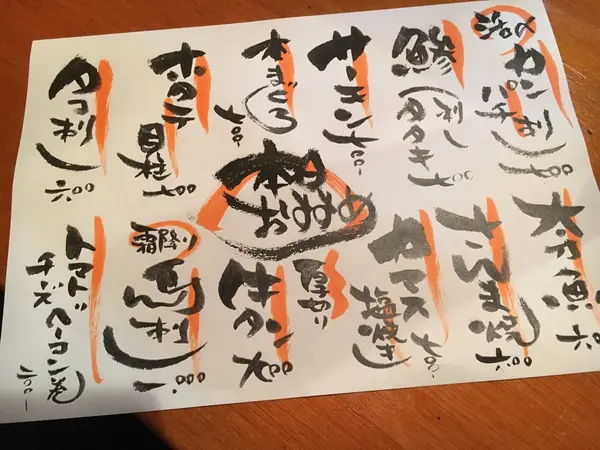 活〆
カンパチ刺し 七〇〇
鯵(刺し
タタキ) 七〇〇
サーモン 七〇〇-
本まぐろ 七〇〇-
ホタテ
貝柱 七〇〇
タコ刺し 六〇〇
本日
おすすめ
太刀魚 六
さんま焼 六〇〇
カマス
塩焼き 七〇〇-
厚切り
牛タン 七〇〇
霜降り
馬刺し 一.〇〇〇
トマト
チーズベーコン巻 二〇〇-